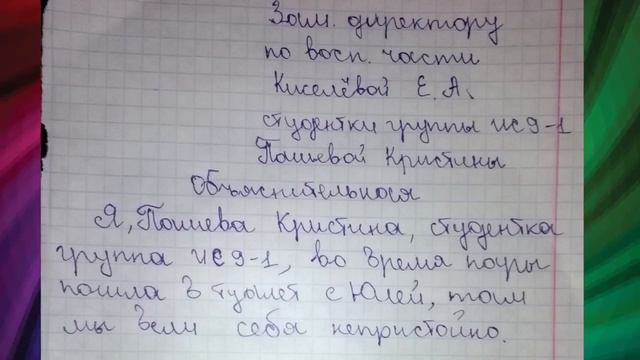 Зам. директору
по восп. части
Киселёвой Е. А.
студентки группы ис9-1
Пашевой Кристины
Объяснительноя
Я, Пашева Кристина, студентка
группа ис9-1, во время поуры
пошла в туылет с Юлей, там
мы вели себя непристойно.